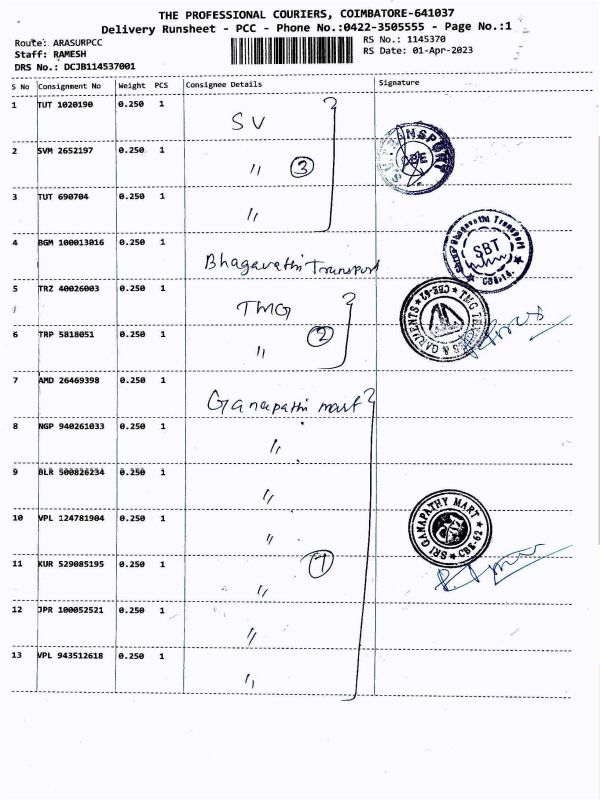 THE PROFESSIONAL COURIERS, COIMBATORE-641037
Delivery Runsheet - PCC - Phone No.:0422-3505555 - Page No.:1
Route: ARASURPCC
RS No.: 1145370
Staff: RAMESH
RS Date: 01-Apr-2023
DRS No.: DCJB114537001
S No Consignment No Weight PCS Consignee Details Signature
1 TUT 1020190 0.250 1 SV
2 SVM 2652197 0.250 1 〃 3
TRANSPORT CBE
3 TUT 690704 0.250 1 〃
4 BGM 100013016 0.250 1 Bhagavathi Transport
Bhagavathi Transport SBT CBE-14
5 TRZ 40026003 0.250 1 TMG
TMG & GARMENTS CBE-62
6 TRP 5818051 0.250 1 〃 2
7 AMD 26469398 0.250 1 Ganapathi mart
8 NGP 940261033 0.250 1 〃
9 BLR 500826234 0.250 1 〃
10 VPL 124781904 0.250 1 〃
SRI GANAPATHY MART CBE-62
11 KUR 529085195 0.250 1 〃 7
12 JPR 100052521 0.250 1 〃
13 VPL 943512618 0.250 1 〃